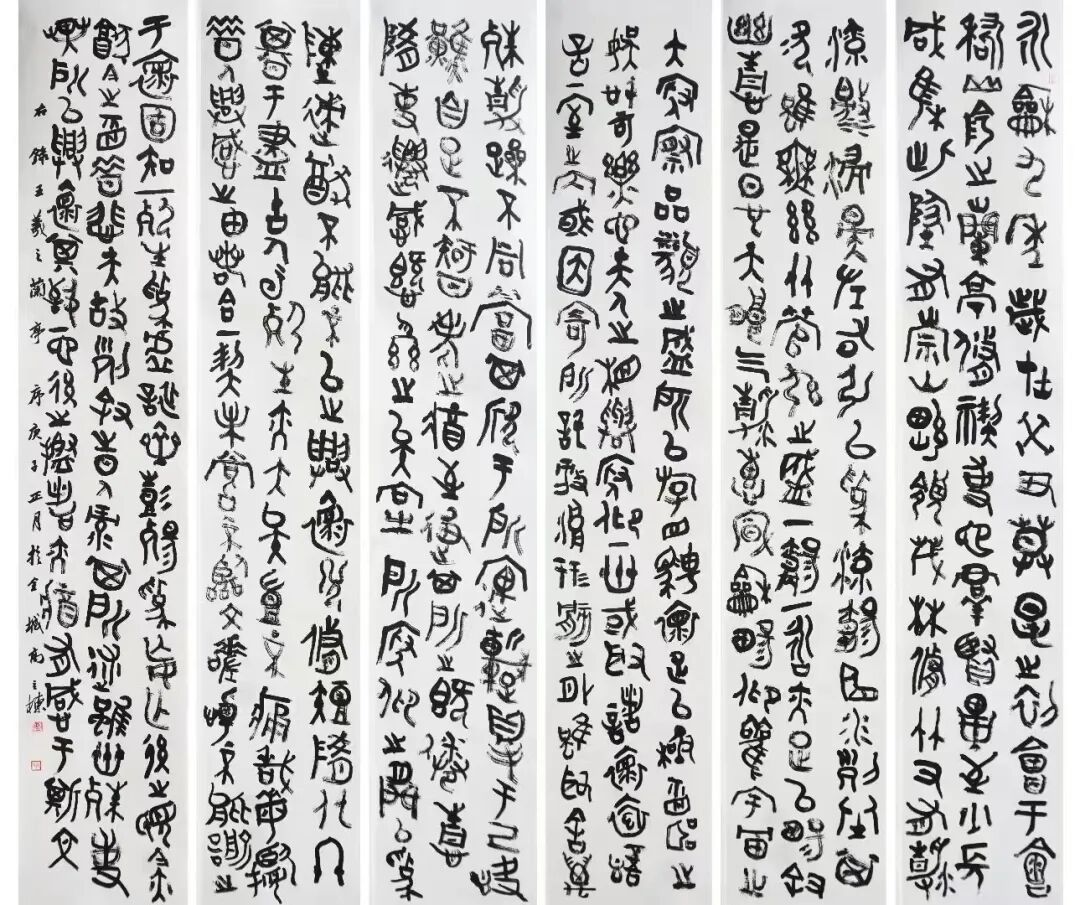 永和九年歲在癸丑暮春之初會于會
稽山陰之蘭亭脩禊事也羣賢畢至少長
咸集此地有崇山峻領茂林脩竹又有清
流激左右引以為流觴曲水列坐其
次雖無絲竹管弦之盛一觴一詠亦足以暢敘
幽情是日也天朗氣清惠風和暢仰觀宇宙之
大俯察品類之盛所以遊目騁懷足以極視聽之
娛信可樂也夫人之相與俯仰一世或取諸懷抱悟
言一室之內或因寄所託放浪形骸之外雖取舍萬
殊靜躁不同當其欣于所遇暫得于己快
然自足不知老之將至及其所之既倦情
隨事遷感慨係之矣向之所欣俛仰之間以為
陳迹猶不能不以之興懷況脩短隨化終
期于盡古人云死生亦大矣豈不痛哉每攬
昔人興感之由若合一契未嘗不臨文嗟悼不能喻之
于懷固知一死生為虛誕齊彭殤為妄作後之視今亦
猶今之視昔悲夫故列敘時人錄其所述雖世殊事
異所以興懷其致一也後之攬者亦將有感于斯文
右錄王羲之蘭亭序庚子正月於金城